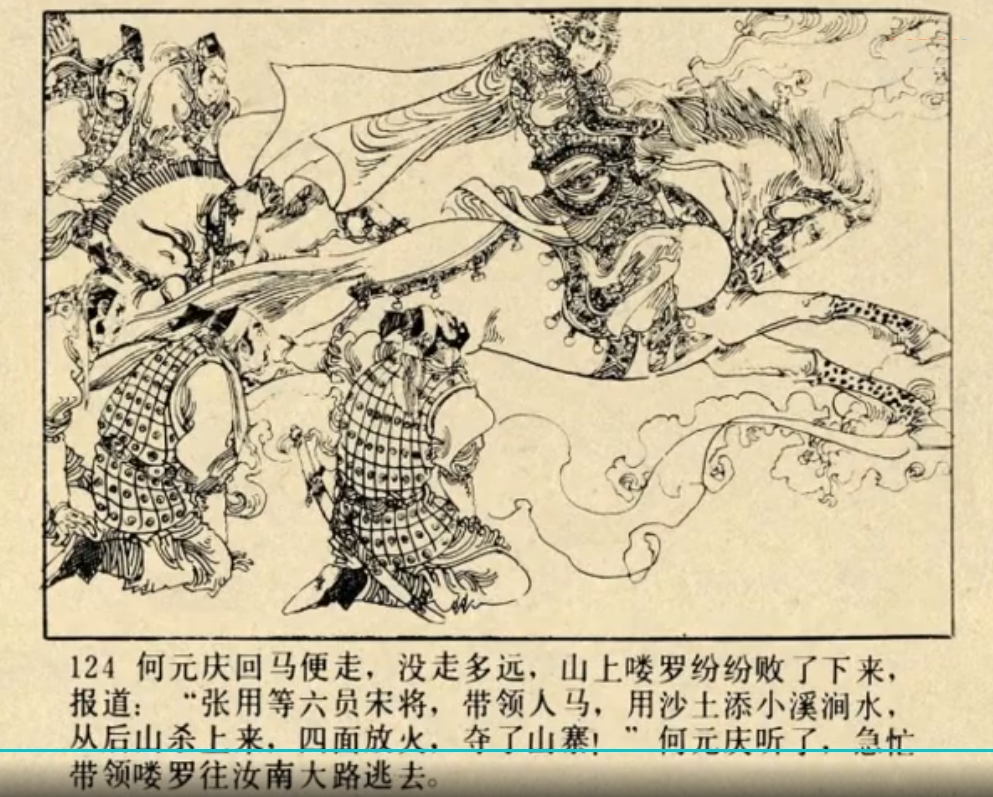 124 何元庆回马便走，没走多远，山上喽罗纷纷败了下来，
报道：“张用等六员宋将，带领人马，用沙土添小溪涧水，
从后山杀上来，四面放火，夺了山寨！”何元庆听了，急忙
带领喽罗往汝南大路逃去。